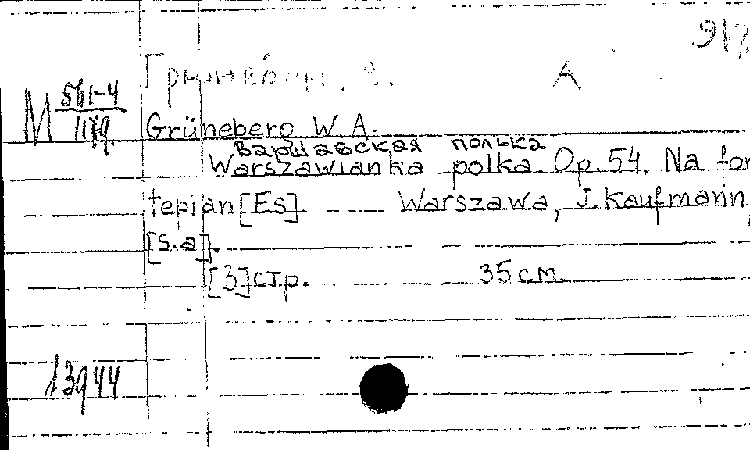 A
М 561-4
1179.
Grüneberg W. A.
Варшавская полька
Warszawianka polka. Op. 54. Na for
tepian [Es]. Warszawa, J. Kaufmann,
[s.a].
[3] стр. 35 см.
13944